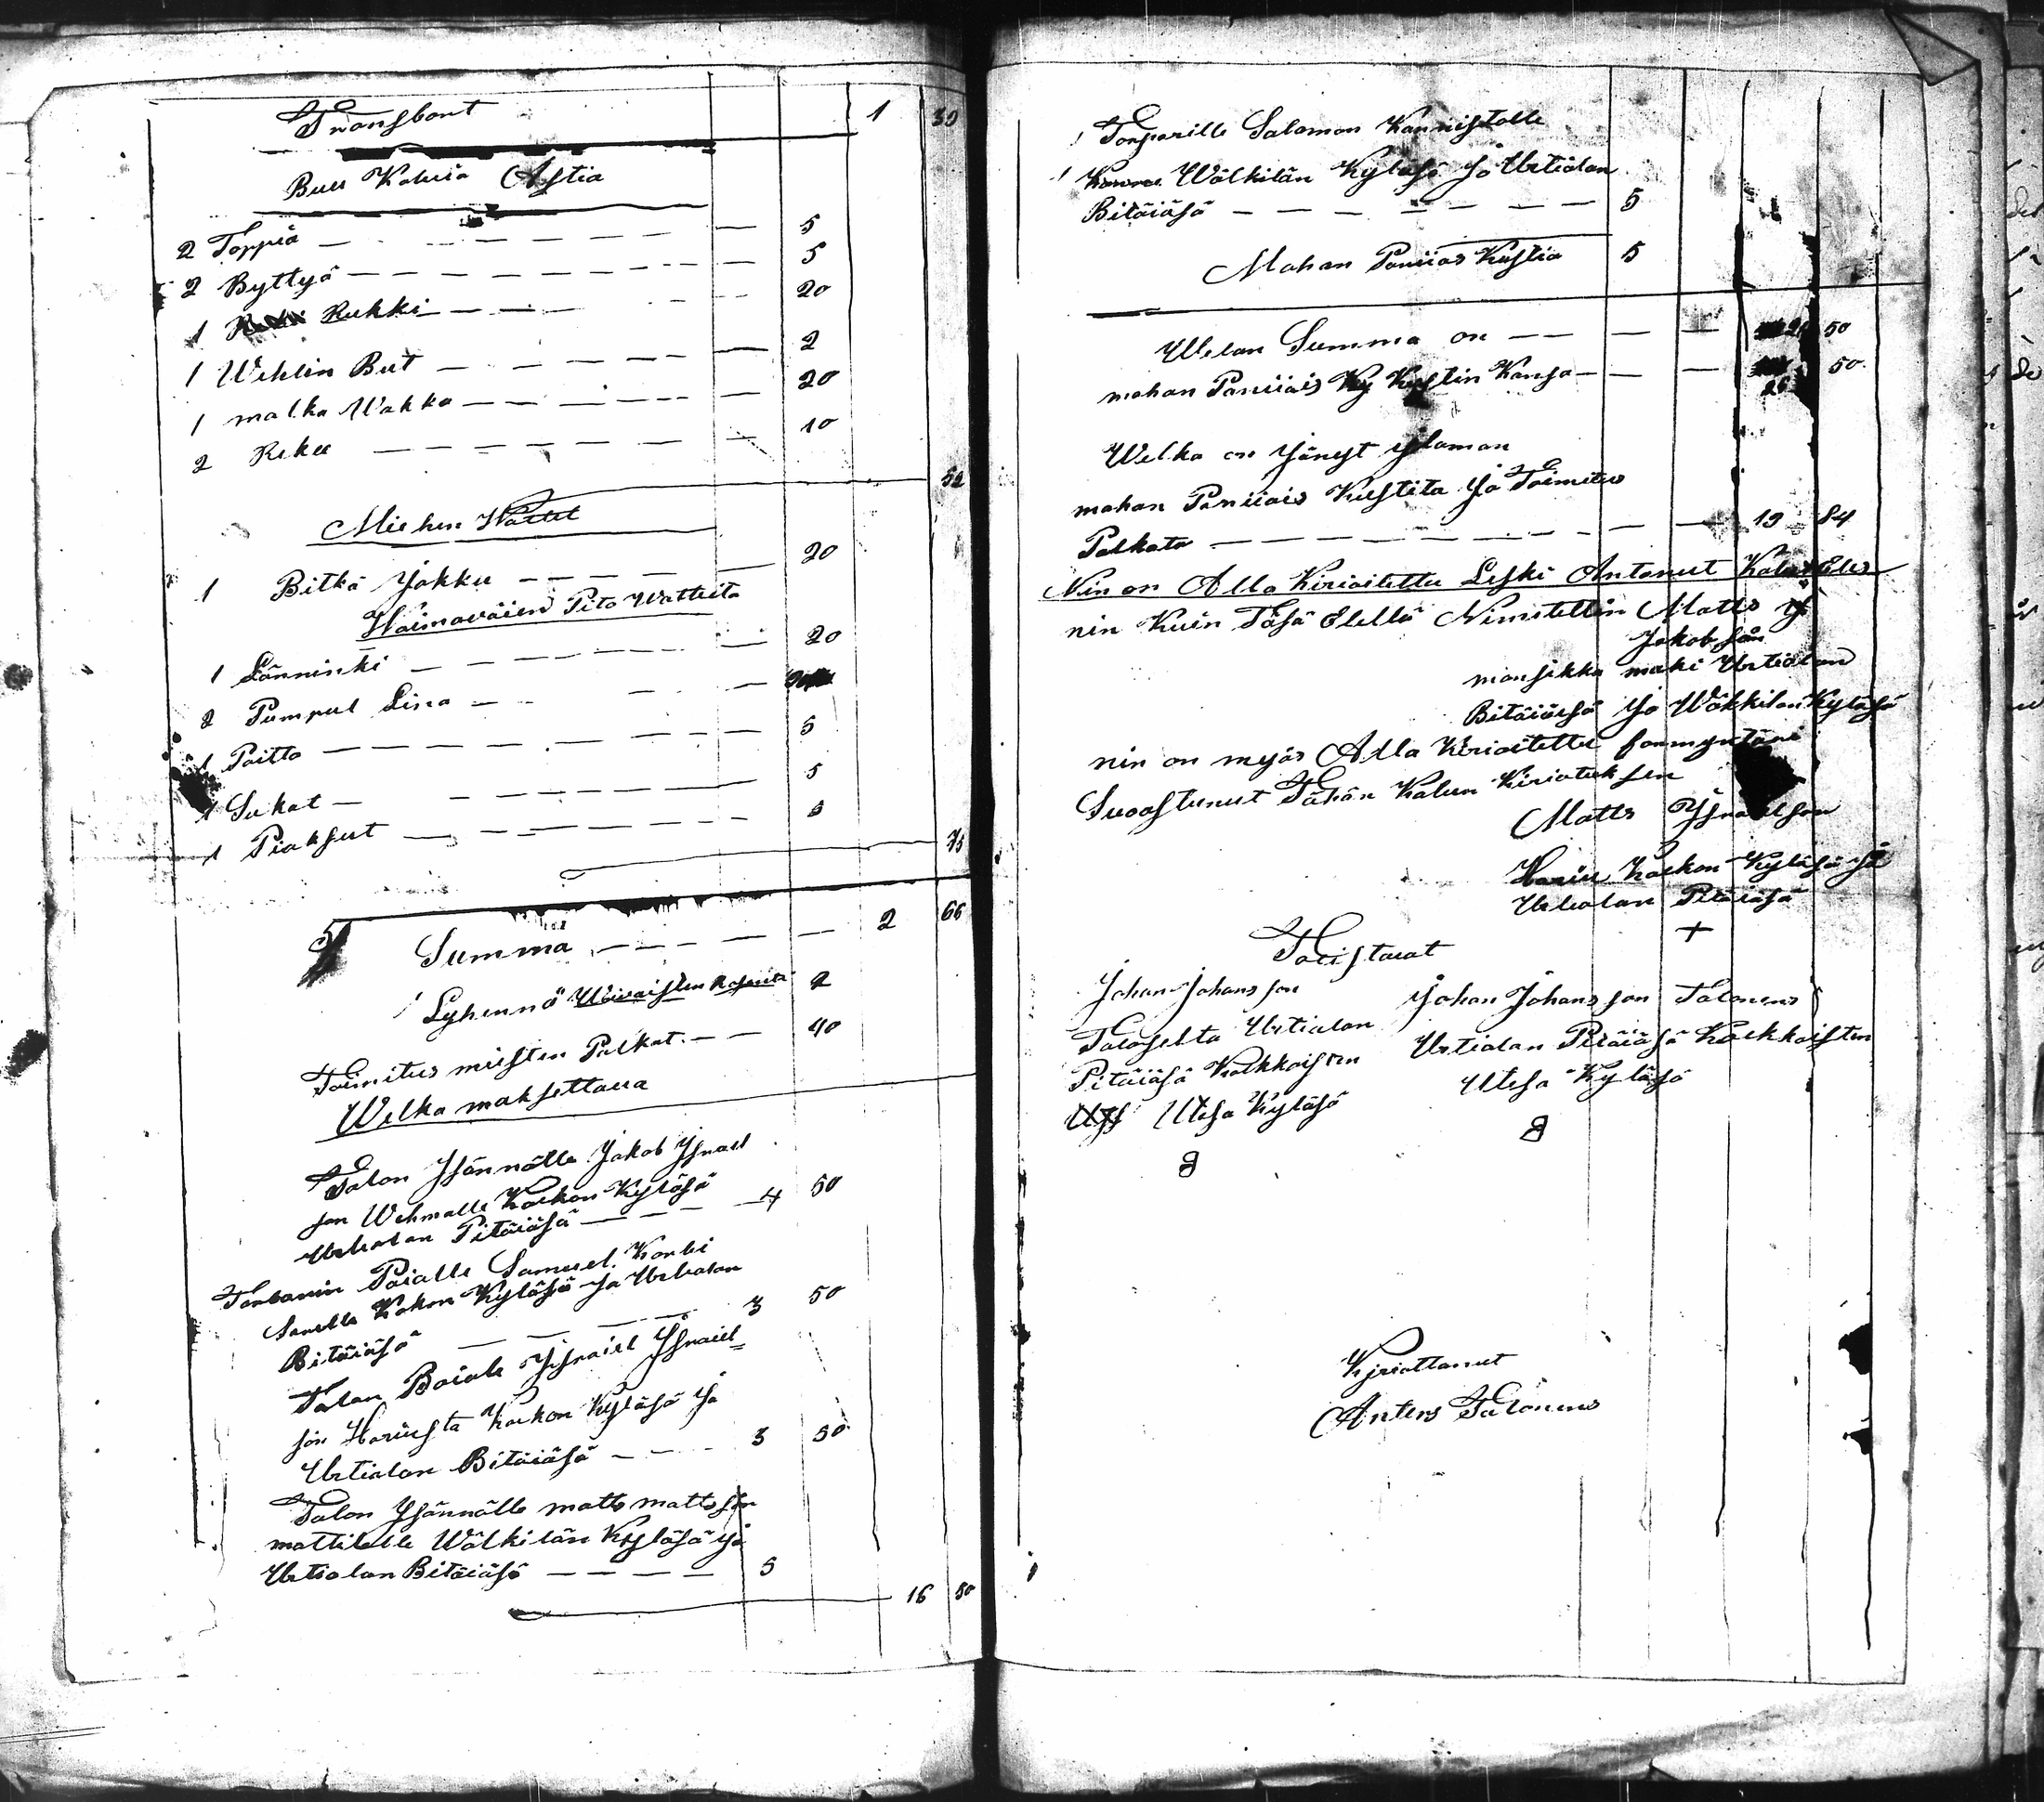 Transbort 1 39
Buu Kaluia Astia
2 Toppia — — — — — 5
2 Byttyä — — — — — 5
1 Rukki — — — 20
1 Wehlin But — — — — 2
1 malka Wakka — — — — 20
2 Reku — — — — — 10
52
Miehen Wattet
1 Bitkä Jakku — — — — 20
Waimowäien Pito Watteita
1 Länninki — — — — — 20
2 Pumpul Lina — — —
1 Paitta — — — — — 5
1 Sukat — — — — — 5
1 Piaksut — — — — — 5
75
Summa — — — — 2 66
Lyhennö Waiwaisten Rosenta 2
Toimitus miesten Palkat — — 40
Welka maksettawa
Talon Isännälle Jakob Isræl
son Wehmalle Kaekon Kyläsä
Urhalan Pitäiäsä — — — 4 50
Torbarin Poialle Samuel Korbi
Sanella Kokon Kyläsä ja Urhalan
Bitäiäsä — — — 3 50
Talon Boiale Isrraiel Israiel=
son Hariusta Kaekon Kyläsä ja
Urtialan Bitäiäsä — — — 3 50
Talon Isännälle matts mattsson
mattilalle Wälkilän Kyläsä ja
Urtialan Bitäiäsä — — — — 5
16 50
Torparille Salomon Kannistolle
Wälkilän Kyläsä ja Urtialan
Bitäiäsä — — — — — — — 5
Mahan Paniias Kustia 5
Welan Summa on — — — — 50
mahan Paniiais Kustin Kansa — — — 26 50
Welka on jänyt ylaman
mahan Paniiais Kustita ja Toimitus
Palkata — — — — — — — — 19 84
Nin on Alla Kirioitettu Leski Antanut
nin Kuin Täsä Elellä Nimitettin Matts
Jakobson
mansikka maki Urtialan
Bitäiäesä ja Wälkilan Kyläsä
nin on myäs Alla Kirioitettu formyntäri
Suoastunut Tähän Kalun Kiriotuksen
Matts Ysraelson
Hariu Kaekon Kyläsä ja
Urhalan Pitäiäsä
+
Todistawat
Johan Johansson
Talaselta Urtialan
Pitäiäsä Kaekkaisten
Utesa Kyläsä
Johan Johansson Talonens
Urtialan Pitäiäsä Kaekkaisten
Utesa Kyläsä
Kjriottanut
Anters Talonens